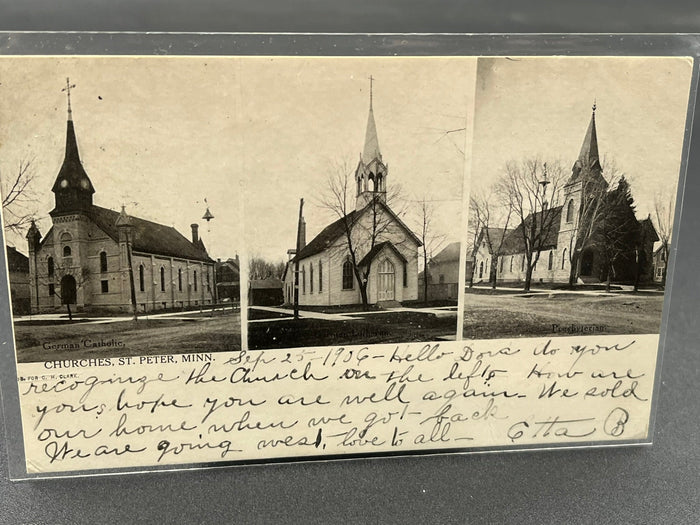 German Catholic,
Presbyterian.
CHURCHES, ST. PETER, MINN.
FOR C. H. CLARK.
Sep 25 - 1906 - Hello Dora do you
recoginze the Church on the left. How are
you, hope you are well again - We sold
our home when we got back
We are going west, love to all - Etta B